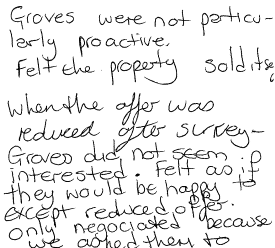 Groves were not particu-
larly proactive.
Felt the property sold itse
when the offer was
reduced after survey-
Groves did not seem
interested. Felt as if
they would be happy to
except reduced offer.
only negociated because
we asked them to